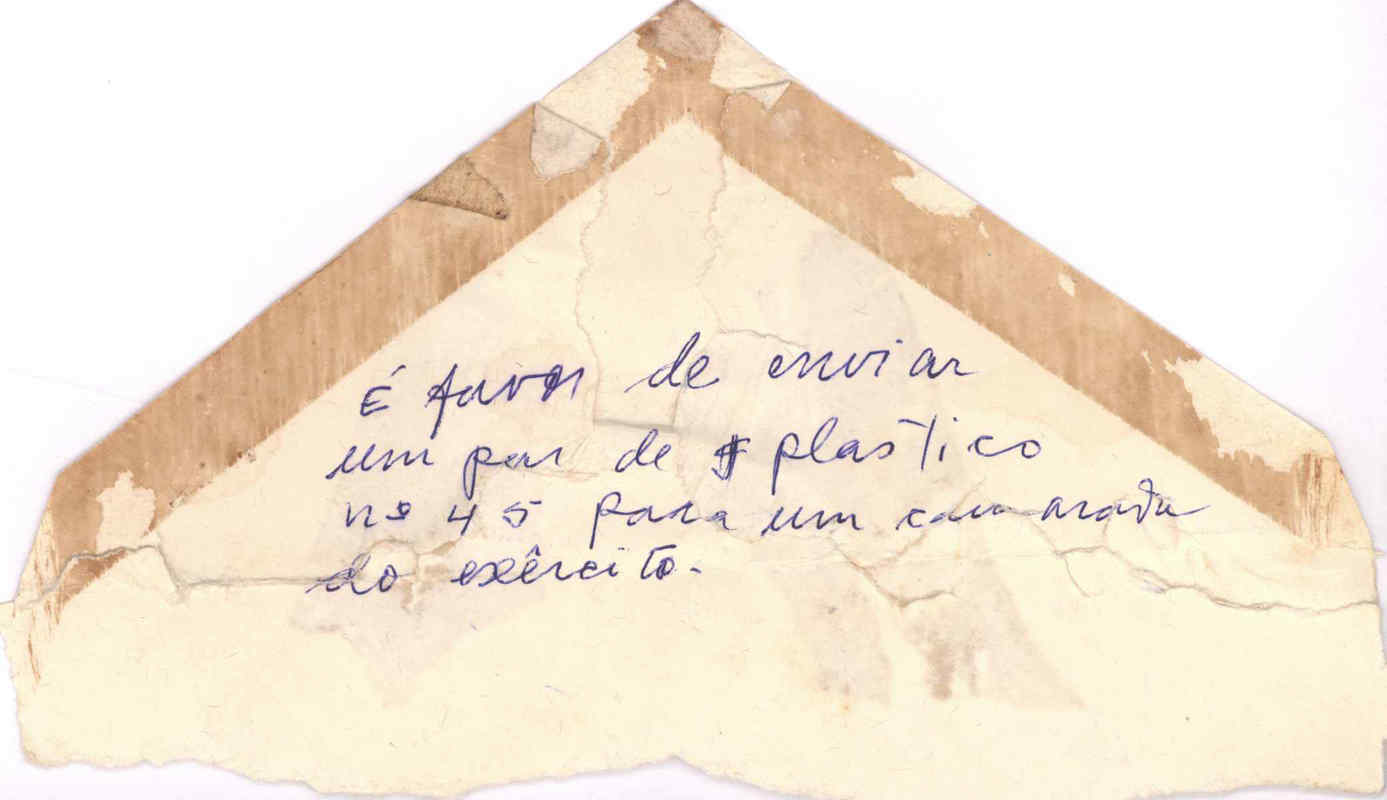 É favor de enviar
um par de plastico
nº 45 para um camarada
do exêrcito.